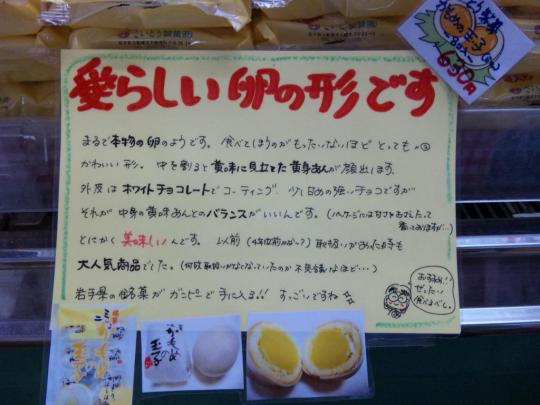 さいとう製菓
かもめの玉子
630円
愛らしい卵の形です
まるで本物の卵のようです。食べてしまうのがもったいないほど とっても
かわいい形。中を割ると黄味に見立てた黄身あんが顔出します。
外皮はホワイトチョコレートでコーティング。少し甘めの強いチョコですが
それが中身の黄味あんとのバランスがいいんです。
とにかく美味しいんです。以前(4年位前かな〜?)取扱いがあった時も
大人気商品でした。(何故取扱いがなくなっていたのか不思議なほど・・・・)
岩手県の銘菓がガーピーで手に入る!! すっごいですね
お子様め!
ぜったい
食べるべし。
かもめの
玉子
かもめの
玉子